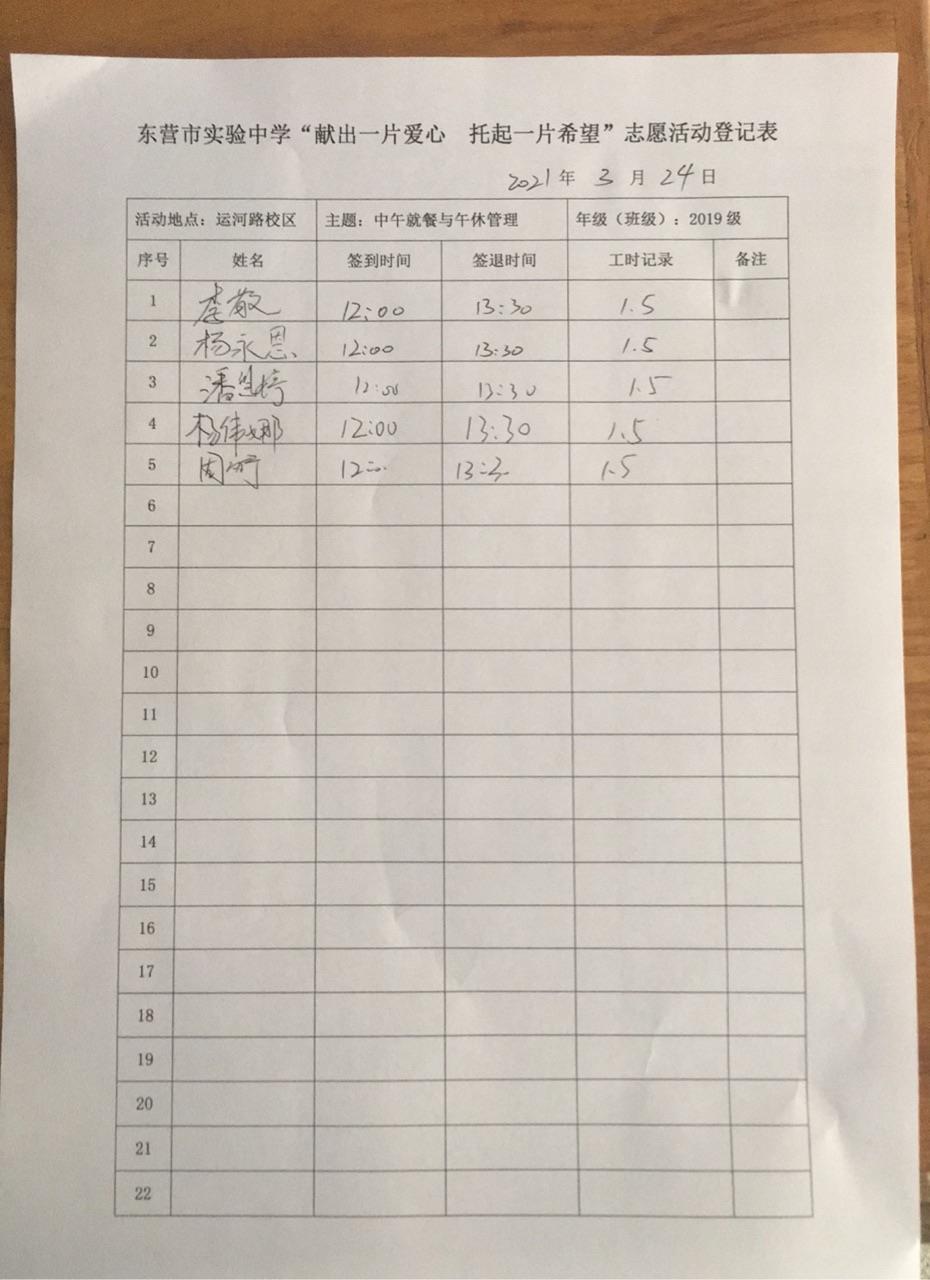 东营市实验中学“献出一片爱心 托起一片希望”志愿活动登记表
2021年 3 月 24日
活动地点：运河路校区 主题：中午就餐与午休管理 年级（班级）：2019 级
序号 姓名 签到时间 签退时间 工时记录 备注
1 李敬 12:00 13:30 1.5
2 杨永恩 12:00 13:30 1.5
3 潘 婷 12:00 13:30 1.5
4 杨伟娜 12:00 13:30 1.5
5 周 1.5
6
7
8
9
10
11
12
13
14
15
16
17
18
19
20
21
22